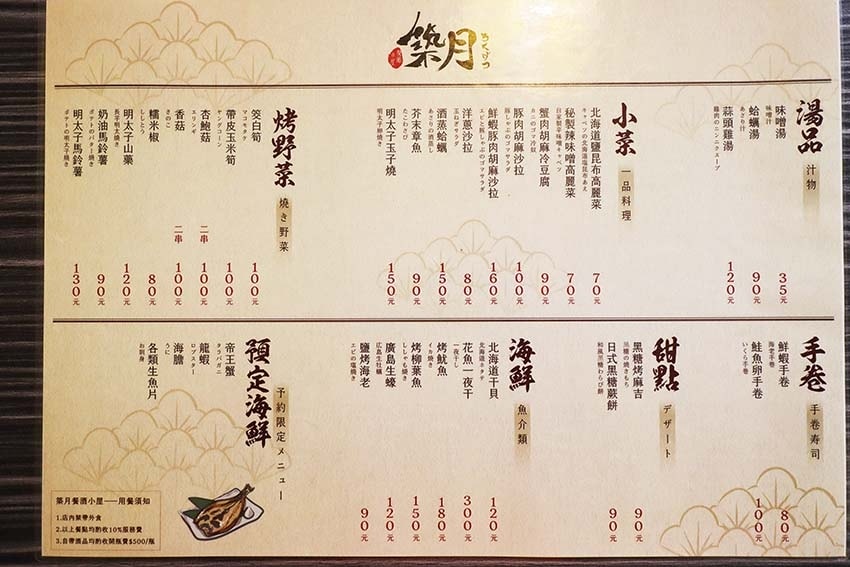 築月
ちくげつ
湯品
汁物
味噌湯
味噌汁
35元
蛤蠣湯
あさり汁
90元
蒜頭雞湯
鶏肉のニンニクスープ
120元
小菜
一品料理
北海道鹽昆布高麗菜
キャベツの北海道塩昆布あえ
70元
秘製辣味噌高麗菜
自家製辛味噌キャベツ
70元
蟹肉胡麻冷豆腐
カニのゴマ冷奴
90元
豚肉胡麻沙拉
豚しゃぶのゴマサラダ
100元
鮮蝦豚肉胡麻沙拉
エビと豚しゃぶのゴマサラダ
160元
洋蔥沙拉
玉ねぎサラダ
80元
酒蒸蛤蠣
あさりの酒蒸し
150元
芥末章魚
たこわさび
90元
明太子玉子燒
明太子卵焼き
150元
烤野菜
燒き野菜
筊白筍
マコモタケ
100元
帶皮玉米筍
ヤングコーン
100元
杏鮑菇
エリンギ
二串
100元
香菇
きのこ
二串
100元
糯米椒
ししとう
80元
明太子山藥
長芋明太焼き
120元
奶油馬鈴薯
ポテトのバター焼き
90元
明太子馬鈴薯
ポテトの明太子焼き
130元
手卷
手巻寿司
鮮蝦手卷
海老手巻
80元
鮭魚卵手卷
いくら手巻
100元
甜點
デザート
黑糖烤麻吉
黒糖の焼きもち
90元
日式黑糖蕨餅
和風黒糖わらび餅
90元
海鮮
魚介類
北海道干貝
北海道ホタテ
120元
花魚一夜干
一夜干し
300元
烤魷魚
イカ焼き
180元
烤柳葉魚
ししゃも焼き
150元
廣島生蠔
広島生牡蠣
120元
鹽烤海老
エビの塩焼き
90元
預定海鮮
予約限定メニュー
帝王蟹
タラバガニ
龍蝦
ロブスター
海膽
うに
各類生魚片
お刺身
築月餐酒小屋——用餐須知
1.店內禁帶外食
2.以上餐點均酌收10%服務費
3.自帶酒品均酌收開瓶費$500/瓶